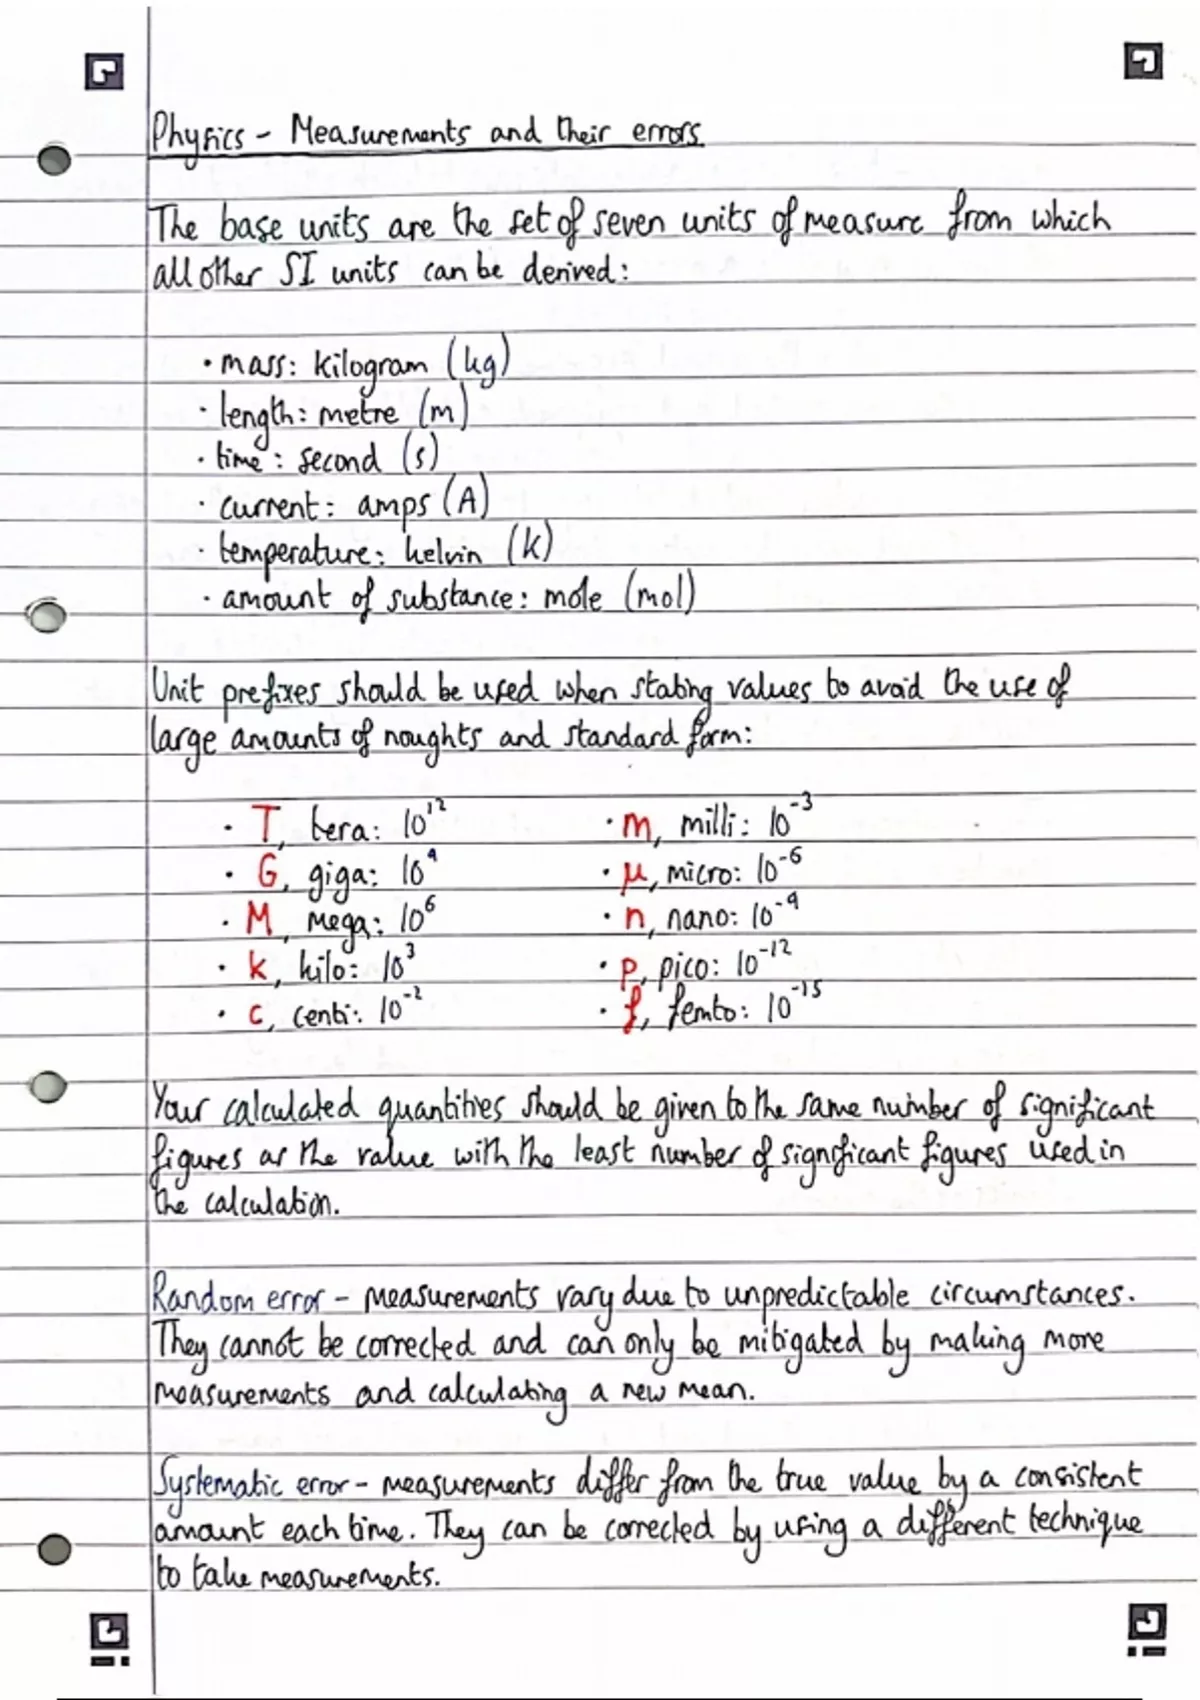 Physics - Measurements and their errors
The base units are the set of seven units of measure from which
all other SI units can be derived:
· mass: kilogram (kg)
· length: metre (m)
· time: second (s)
· current: amps (A)
· temperature: kelvin (K)
· amount of substance: mole (mol)
Unit prefixes should be used when stating values to avoid the use of
large amounts of noughts and standard form:
· T, tera: 10¹²
· G, giga: 10⁹
· M, mega: 10⁶
· k, kilo: 10³
· c, centi: 10⁻²
· m, milli: 10⁻³
· μ, micro: 10⁻⁶
· n, nano: 10⁻⁹
· p, pico: 10⁻¹²
· f, femto: 10⁻¹⁵
Your calculated quantities should be given to the same number of significant
figures as the value with the least number of significant figures used in
the calculation.
Random error - measurements vary due to unpredictable circumstances.
They cannot be corrected and can only be mitigated by making more
measurements and calculating a new mean.
Systematic error - measurements differ from the true value by a consistent
amount each time. They can be corrected by using a different technique
to take measurements.